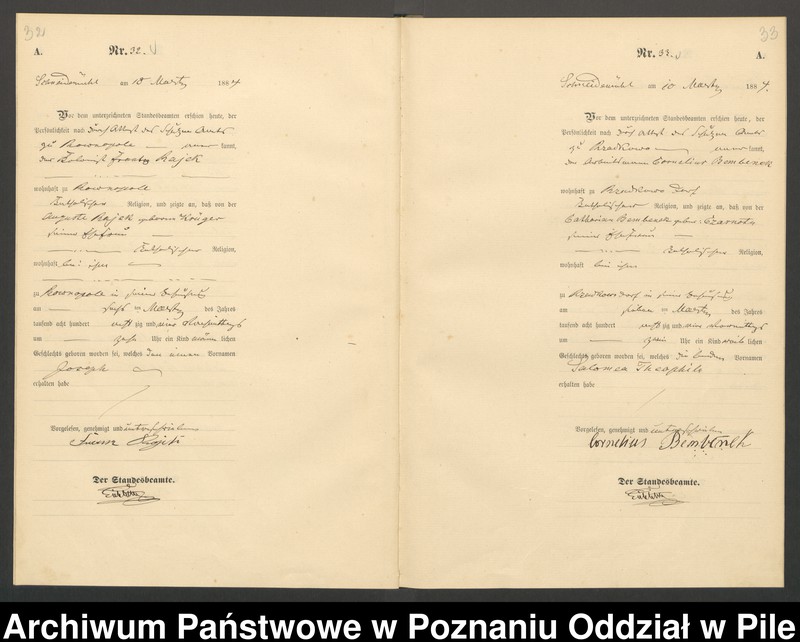 32
A.
Nr. 32.
Schneidemühl am 10 März 1884
Vor dem unterzeichneten Standesbeamten erschien heute, der
Persönlichkeit nach durch Attest des Schulzen Amts
zu kannt,
der Kolonist Rajek
wohnhaft zu
katholischer Religion, und zeigte an, daß von der
Auguste Rajek geborne Krüger
seiner Ehefrau
katholischer Religion,
wohnhaft bei ihm
zu in seiner Behausung
am sechs ten März des Jahres
tausend acht hundert acht zig und vier Vormittags
um Uhr ein Kind männ lichen
Geschlechts geboren worden sei, welches den einen Vornamen
Joseph
erhalten habe
Vorgelesen, genehmigt und unterschrieben
Der Standesbeamte.
33
Nr. 33.
A.
Schneidemühl am 10 März 1884.
Vor dem unterzeichneten Standesbeamten erschien heute, der
Persönlichkeit nach durch Attest des Schulzen Amts
zu kannt,
der Arbeitsmann Cornelius Bembenek
wohnhaft zu Dorf
katholischer Religion, und zeigte an, daß von der
Catharina Bembenek geborne Czarnota
seiner Ehefrau
katholischer Religion,
wohnhaft bei ihm
zu Dorf in seiner Behausung
am sieben ten März des Jahres
tausend acht hundert acht zig und vier Vormittags
um Uhr ein Kind weib lichen
Geschlechts geboren worden sei, welches die beiden Vornamen
Salomea Theophile
erhalten habe
Vorgelesen, genehmigt und unterschrieben
Cornelius Bembenek
Der Standesbeamte.
Archiwum Państwowe w Poznaniu Oddział w Pile